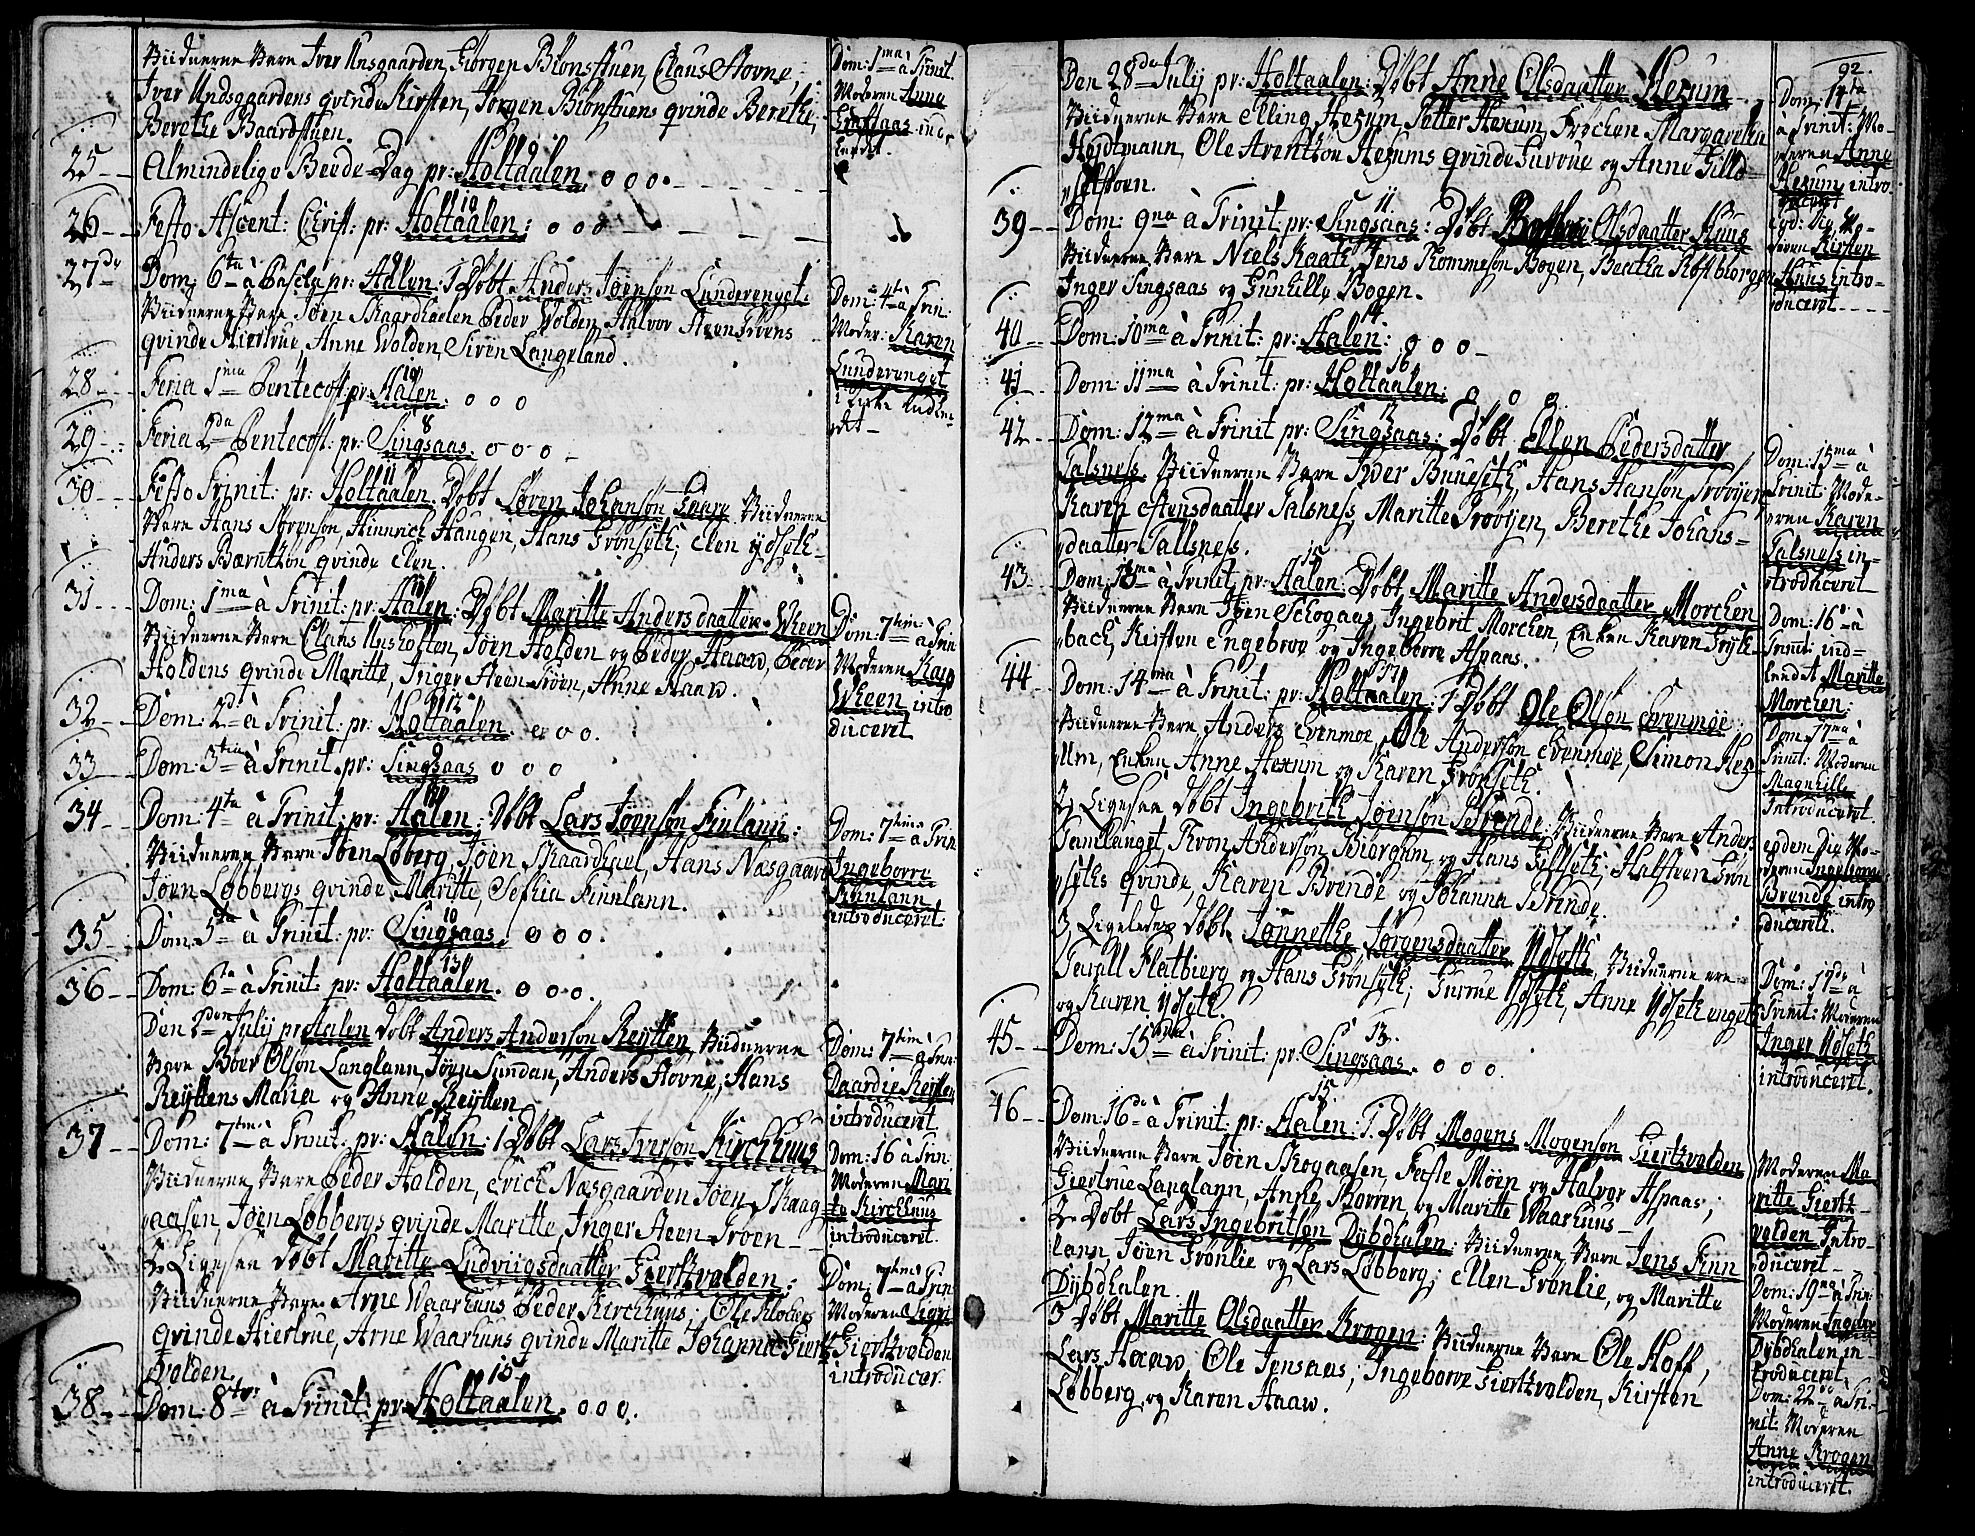 Viidnerne Vare Iver Unsgaarden, Jörgen Blönstuen, Claus Hovne,
Iver Undsgaardens qvinde Kirsten, Jörgen Blönstuens qvinde Berethe,
Berethe Baardstuen.
25 Almindelige Beede-Dag pr: Holtdalen 9 o o o
26 Festo Ascent: Christ: pr: Holtaalen: 10 o o o
27 Dom: 6ta à Pascha pr: Aalen: 1 Döbt Anders Jöensön Lunderenget:
Viidnerne Vare Jöen Skaardhalen, Peder Volden, Halvor Heen Tröens
qvinde Giertrue, Anne Volden, Siren Langeland.
28 Feria 1ma Pentecost: pr: Aalen 10 o o o
29 Feria 2da Pentecost: pr: Singsaas 8 o o o
30 Festo Trinit: pr: Holtaalen 11 Döbt Sören Johansön Gaare Viidnerne
Vare Hans Sörensön, Hinnrich Haugen, Hans Trönseth; Elen Ydseth
Anders Bærnthsön qvinde Elen.
31 Dom: 1ma à Trinit: pr: Aalen: Döbt Maritte Andersdaatter Wheen
Viidnerne Vare Claus Unsholten, Jöen Holden og Peder Haaw, Peder
Holdens qvinde Maritte, Inger Heen Tröen, Anne Haaw.
32 Dom: 2d à Trinit: pr: Holtaalen 12 o o o.
33 Dom: 3tia à Trinit. pr: Singsaas 9 o o o
34 Dom: 4ta à Trinit: pr: Aalen: Döbt Lars Jöensön Finlann:
Viidnerne Vare Jöen Löberg, Jöen Skaardhael, Hans Næsgaard
Jöen Löbbergs qvinde Maritte, Sophia Finnlann.
35 Dom: 5ta à Trinit: pr: Singsaas 10 o o o.
36 Dom: 6ta à Trinit: pr: Holtaalen 13 o o o.
Den 2den Julij pr Aalen Döbt Anders Andersön Reytten, Viidnerne
Vare Boer Olsön Langlann, Jöen Sundan, Anders Hovne, Hans
Reyttens Maria og Anne Reytten
37 Dom: 7tima à Trinit: pr: Aalen: 1 Döbt Lars Iversön Kirchhuus
Viidnerne Vare Peder Holden, Erich Næsgaarden Jöen Skaag-
aasen, Jöen Löbbergs qvinde Maritte, Inger Heen Tröen
2 Ligesaa Döbt Maritte Ludviigsdaatter Giertzvolden:
Viidnerne Vare Arne Waarhuus Peder Kirchhuus; Ole Klockers
qvinde Giertrue, Arne Waarhuus qvinde Maritte Johanna Giertz
volden.
38 Dom: 8tva à Trinit: pr Holtaalen 15 o o o.
Dom: 1ma à Trinit.
Moderen Anne
indle
ledet.
Dom: 4ta à Trin.
Moder: Karen
Lunderenget
i Kirke Indle
det
Dom: 7tima à Trin
Moderen Kari
Wheen intro
duceret
Dom: 7tima à Trin
Ingeborre
Finnlann
introduceret
Dom: 7tima à Trin:
Reytten
introduceret
Dom: 16 à Trin
Moderen Mari
te Kirchhuus
introduceret.
Dom: 7tima à Trin
Moderen
Giertzvolden
introducer.
92.
Den 28de Julij pr: Holtaalen: Döbt Anne Olsdaatter Hexum
Viidnerne Vare Elling Hexum, Petter Hexum, Fröchen Margaretha
Hordtmann, Ole Arentsön Hexums qvinde Gurrue og Anne Gilld-
sethöen.
39 Dom: 9na à Trinit pr: Singsaas: 11 Döbt Olsdaatter Huus
Viidnerne Vare Niels Kaath, Jens Rommesön Bogen, Beatha
Inger Singsaas og Gunhille Bogen.
40 Dom: 10ma à Trinit: pr: Aalen: 14 o o o
41 Dom: 11ma à Trinit: pr: Holtaalen: 16 o o o
42 Dom: 12ma à Trinit pr: Singsaas: 12 Döbt Ellen Pedersdatter
Talsness. Viidnerne Vare Iver Bunesth, Hans Hansön Tröoyen
Karen Estensdaatter Talsness, Maritte Tröoyen, Berethe Johans-
daatter Tallsness.
43 Dom: 13ma à Trinit pr: Aalen: 15 Döbt Maritte Andersdaatter Morchen
Viidnerne Vare Jöen Schogaas, Ingebrit Morchen, Enken Karen Tryh-
bach, Kirsten Engebroe og Ingeborre Aspaas.
44 Dom: 14ma à Trinit: pr: Holtaalen: 17 1 Döbt Ole Olsön Evenmöe
Viidnerne Vare Anders Evenmoe, Ole Andersön Evenmöe, Simon Hex-
um, Enken Anne Hexum og Karen Trönseth.
2 Ligesaa Döbt Ingebrith Jönsön Brende: Viidnerne Vare Anders
Gamlanget, Tron Andersön Biorgum, og Hans Gillseth; Halsteen Trön
seths qvinde, Karen Brende og Johanna Brinde.
3 Ligeledes Döbt Jonnethe Jörgensdaatter Ydseth, Viidnerne ere
Flatbierg og Hans Trönseth; Gurrue Ydseth, Anne Ydsethenget
og Karen Ydseth.
45 Dom: 15 à Trinit: pr: Singsaas 13. o o o.
46 Dom: 16de à Trinit. pr: Aalen: 15. 1. Döbt Mogens Mogensön Giertzvolden
Viidnerne Vare Jöen Skogaasen, Faste Möen og Halvor Aspaas;
Giertrue Langlann, Anne Borren, og Maritte Waarhuus
2 Döbt Lars Ingebritsön Dybdhalen: Viidnerne Vare Jens Finn
lann, Jöen Trönlie og Lars Löbberg; Ellen Trönlie, og Maritte
Dybdhalen.
3 Döbt Maritte Olsdaatter Krogen: Viidnerne Vare Ole Hoff,
Lars Haaw, Ole Jensaas; Ingeborre Giertzvolden, Kirsten
Löbberg, og Karen Haaw.
Dom: 14ta
à Trinit: Mo-
deren Anne
Hexum intro
duceret
eod: die Mo-
deren Kirsten
Huus intro-
duceret
Dom: 15ma à
Trinit: Mode-
ren Karen
Talsness in-
troduceret
Dom: 16 à
Trinit: ind-
ledet Maritte
Morchen:
Dom: 17ma à
Trinit: Moderen
Magnhille
Introduceret.
eodem die Mo-
deren Ingeborre
Brende intro
duceret.
Dom: 17de à
Trinit: Moderen
Inger Ydseth
introduceret.
Moderen Ma
ritte Giertz-
volden Intro-
duceret
Dom: 19na à Trin:
Moderen Ingebor
Dybdhalen in-
troduceret
Dom: 22da à Tri-
nit: Moderen
Anne Krogen
introduceret.